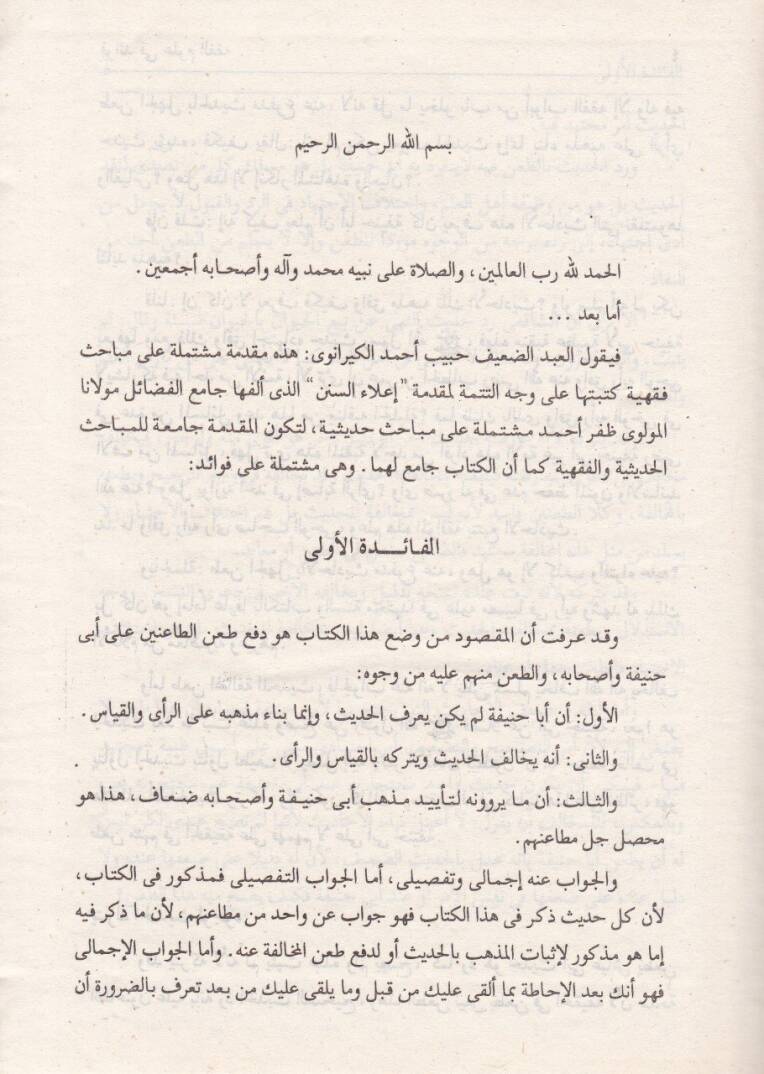 بسم الله الرحمن الرحيم
الحمد لله رب العالمين، والصلاة على نبيه محمد وآله وأصحابه أجمعين.
أما بعد ...
فيقول العبد الضعيف حبيب أحمد الكيرانوى: هذه مقدمة مشتملة على مباحث
فقهية كتبتها على وجه التتمة لمقدمة "إعلاء السنن" الذى ألفها جامع الفضائل مولانا
المولوى ظفر أحمد مشتملة على مباحث حديثية، لتكون المقدمة جامعة للمباحث
الحديثية والفقهية كما أن الكتاب جامع لهما. وهى مشتملة على فوائد:
الفائدة الأولى
وقد عرفت أن المقصود من وضع هذا الكتاب هو دفع طعن الطاعنين على أبى
حنيفة وأصحابه، والطعن منهم عليه من وجوه:
الأول: أن أبا حنيفة لم يكن يعرف الحديث، وإنما بناء مذهبه على الرأى والقياس.
والثانى: أنه يخالف الحديث ويتركه بالقياس والرأى.
والثالث: أن ما يروونه لتأييد مذهب أبى حنيفة وأصحابه ضعاف، هذا هو
محصل جل مطاعنهم.
والجواب عنه إجمالى وتفصيلى، أما الجواب التفصيلى فمذكور فى الكتاب،
لأن كل حديث ذكر فى هذا الكتاب فهو جواب عن واحد من مطاعنهم، لأن ما ذكر فيه
إما هو مذكور لإثبات المذهب بالحديث أو لدفع طعن المخالفة عنه. وأما الجواب الإجمالى
فهو أنك بعد الإحاطة بما ألقى عليك من قبل وما يلقى عليك من بعد تعرف بالضرورة أن